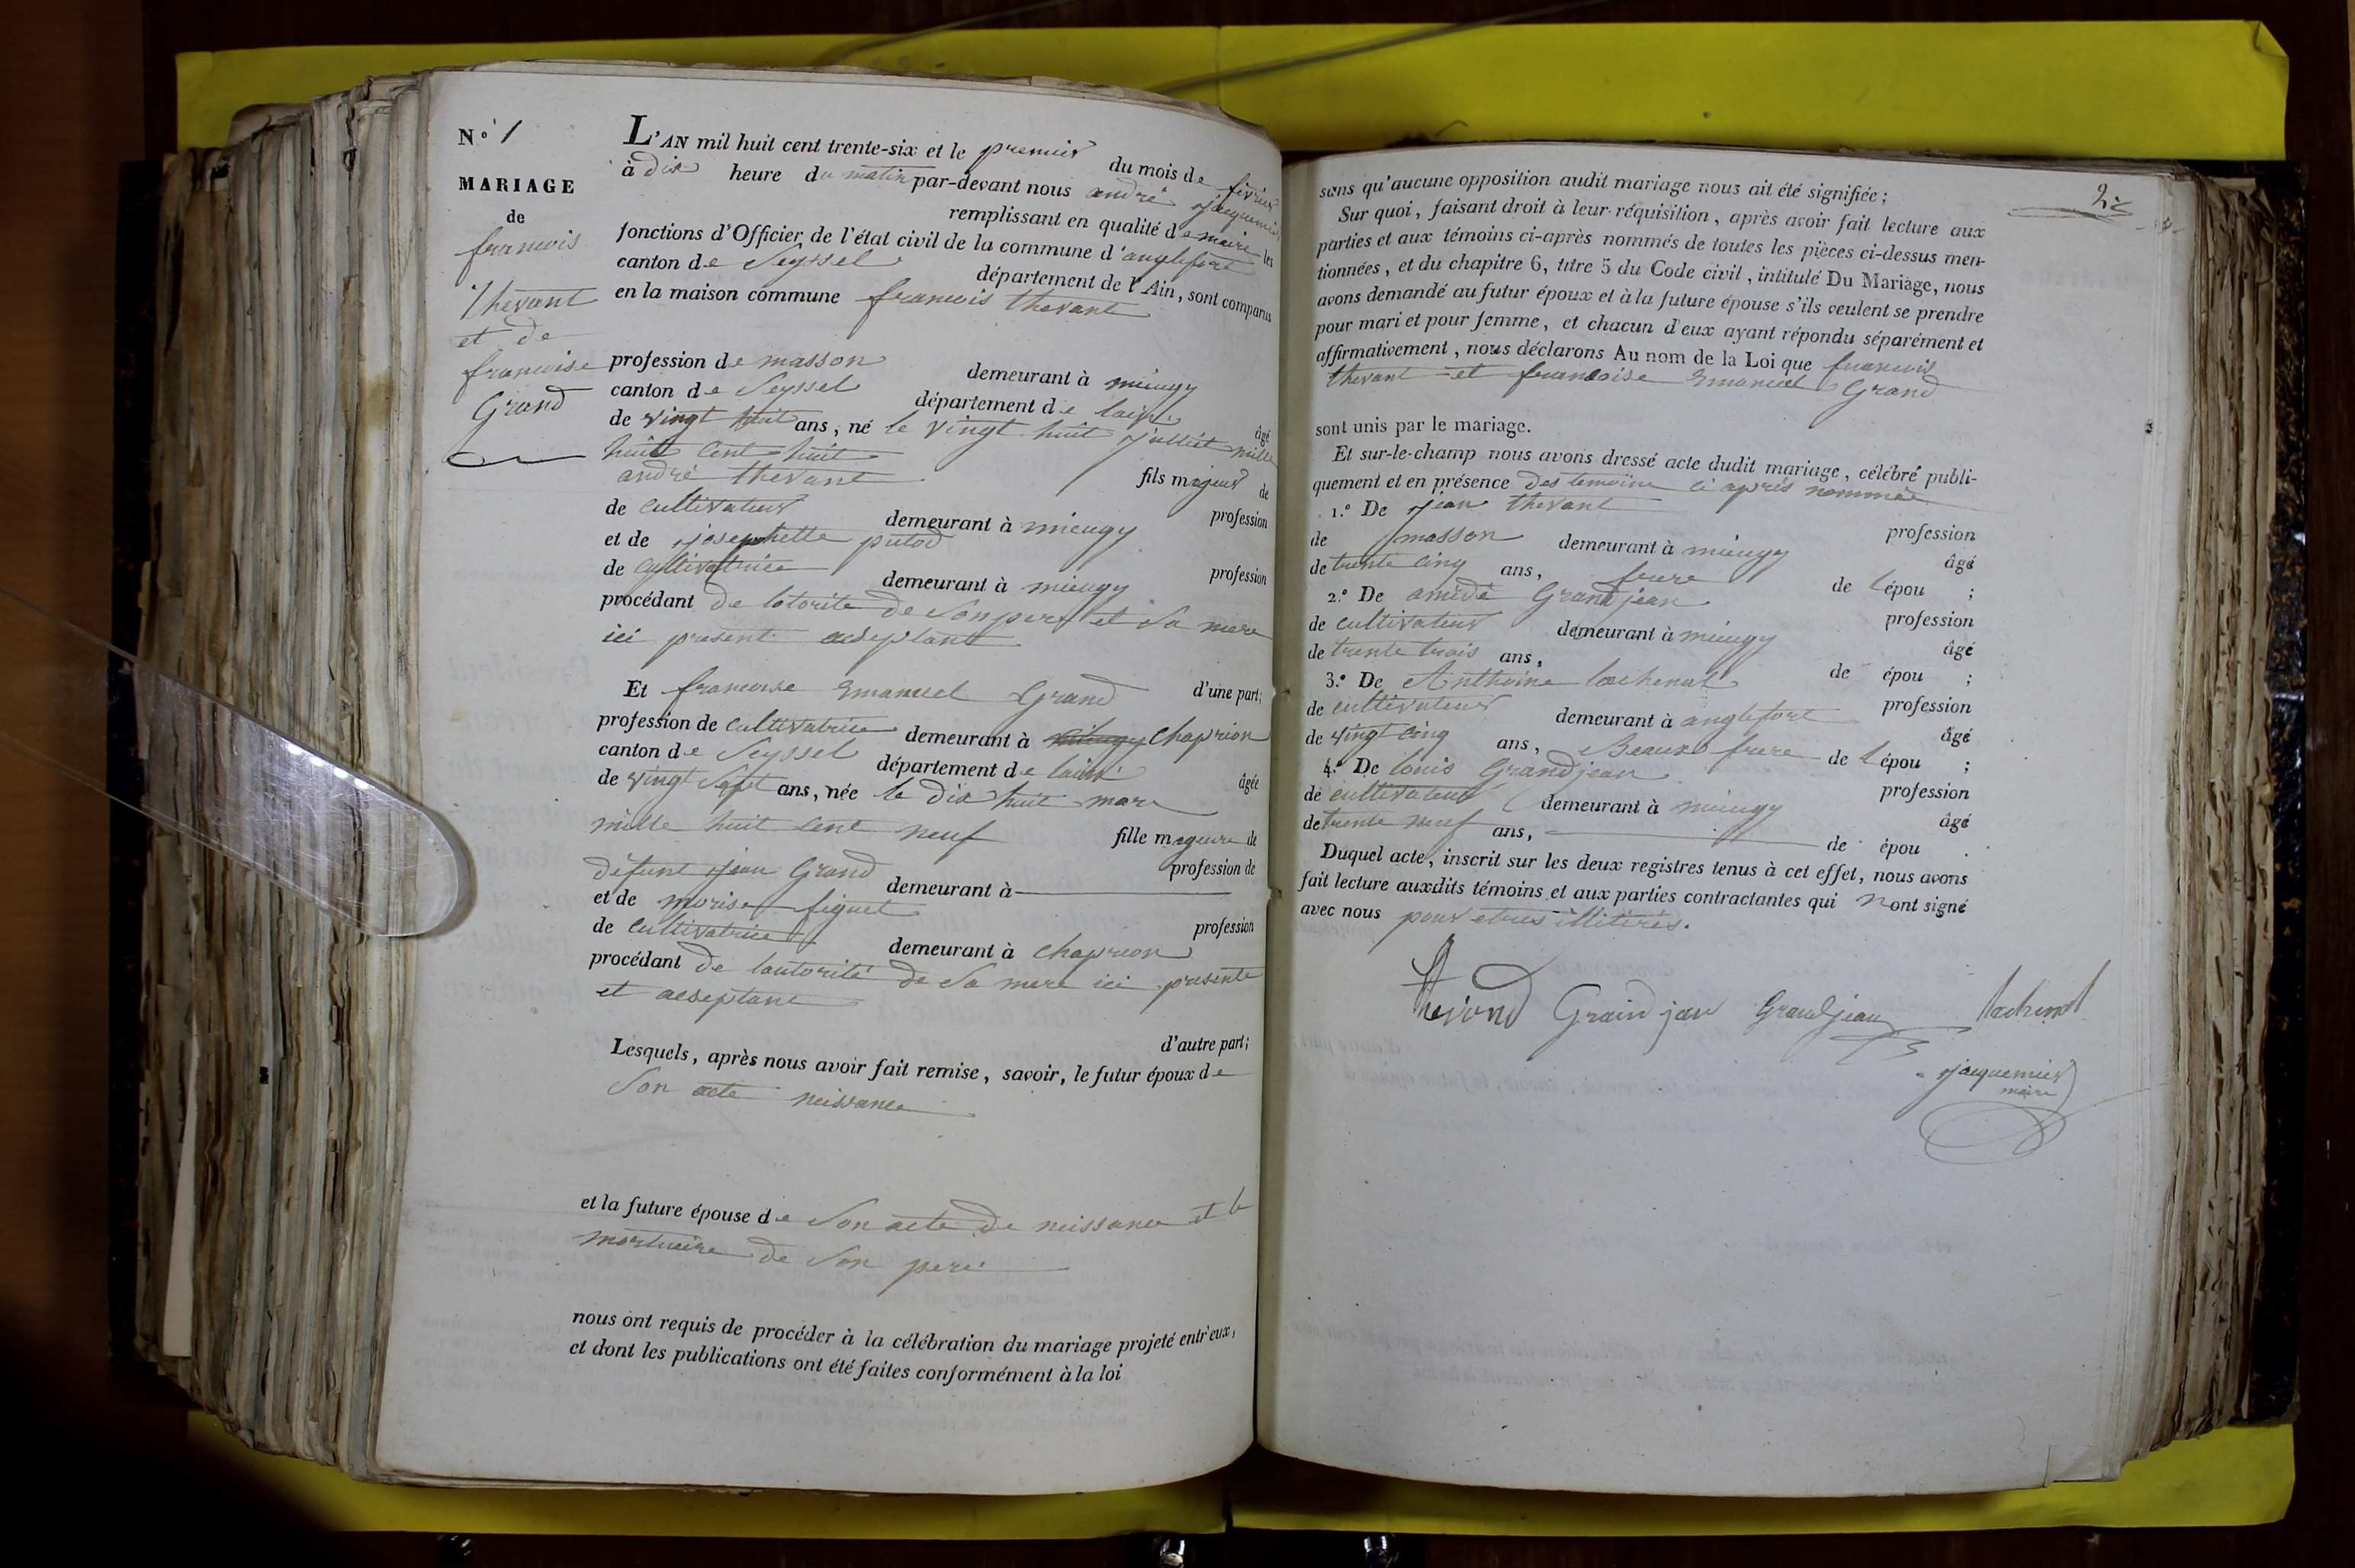 N.º 1
MARIAGE
de
francois
thevant
et de
francoise
Grand
L'AN mil huit cent trente-six et le premier du mois de fevrier
à dix heure du matin par-devant nous andré jacquemier
remplissant en qualité de maire les
fonctions d'Officier de l'état civil de la commune d'anglefort
canton de Seyssel département de l'Ain, sont comparus
en la maison commune francois thevant
profession de masson demeurant à mieugy
canton de Seyssel département de lain âgé
de vingt huit ans, né le vingt huit julliet mille
huit cent huit fils majeur de
andré thevant profession
de cultivateur demeurant à mieugy
et de josephette putod profession
de cultivatrice demeurant à mieugy
procédant de lotorite de son pere et sa mere
ici present acseptant
d'une part;
Et francoise Emanuel Grand
profession de cultivatrice demeurant à chaprion
canton de Seyssel département de lain âgée
de vingt sept ans, née le dix huit mars
mille huit cent neuf fille mageure de
défunt jean Grand profession de
demeurant à
et de morise figuet profession
de cultivatrice demeurant à chaprion
procédant de lautorité de sa mere ici presente
et acseptant
d'autre part;
Lesquels, après nous avoir fait remise, savoir, le futur époux de
son acte neissance
et la future épouse de son acte de neissance et le
mortuaire de son pere
nous ont requis de procéder à la célébration du mariage projeté entr'eux,
et dont les publications ont été faites conformément à la loi
2
sans qu'aucune opposition audit mariage nous ait été signifiée;
Sur quoi, faisant droit à leur réquisition, après avoir fait lecture aux
parties et aux témoins ci-après nommés de toutes les pièces ci-dessus men-
tionnées, et du chapitre 6, titre 5 du Code civil, intitulé Du Mariage, nous
avons demandé au futur époux et à la future épouse s'ils veulent se prendre
pour mari et pour femme, et chacun d'eux ayant répondu séparément et
affirmativement, nous déclarons Au nom de la Loi que francois
thevant et francoise Emanuel Grand
sont unis par le mariage.
Et sur-le-champ nous avons dressé acte dudit mariage, célébré publi-
quement et en présence des temoins ci après nommée
1.º De jean thevant profession
de masson demeurant à mieugy âgé
de trente cinq ans, frere de l'épou ;
2.º De amédé Grandjean profession
de cultivateur demeurant à mieugy âgé
de trente trois ans, de épou ;
3.º De Anthoine lachenal profession
de cultivateur demeurant à anglefort âgé
de vingt cinq ans, Beaux frere de l'épou ;
4.º De louis Grandjean profession
de cultivateur demeurant à mieugy âgé
de trente neuf ans, de épou .
Duquel acte, inscrit sur les deux registres tenus à cet effet, nous avons
fait lecture auxdits témoins et aux parties contractantes qui n'ont signé
avec nous pour etres illitérés.
thevond Graindjean Grandjean lachenal
jacquemier
maire